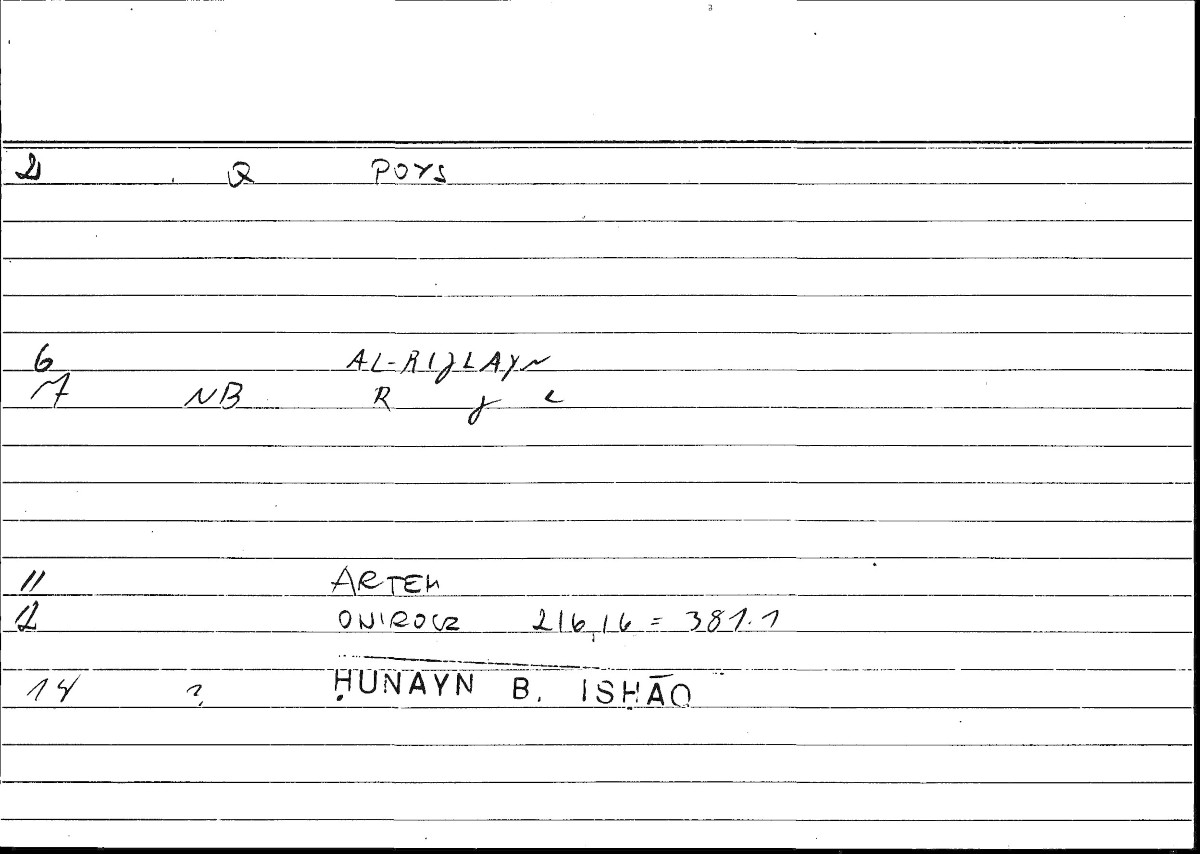 2 Q POYS
6 AL-RIJLAYN
7 NB R J L
11 ARTEM
12 ONIROCR 216,16 = 381.1
14 ? ḤUNAYN B. ISḤĀQ